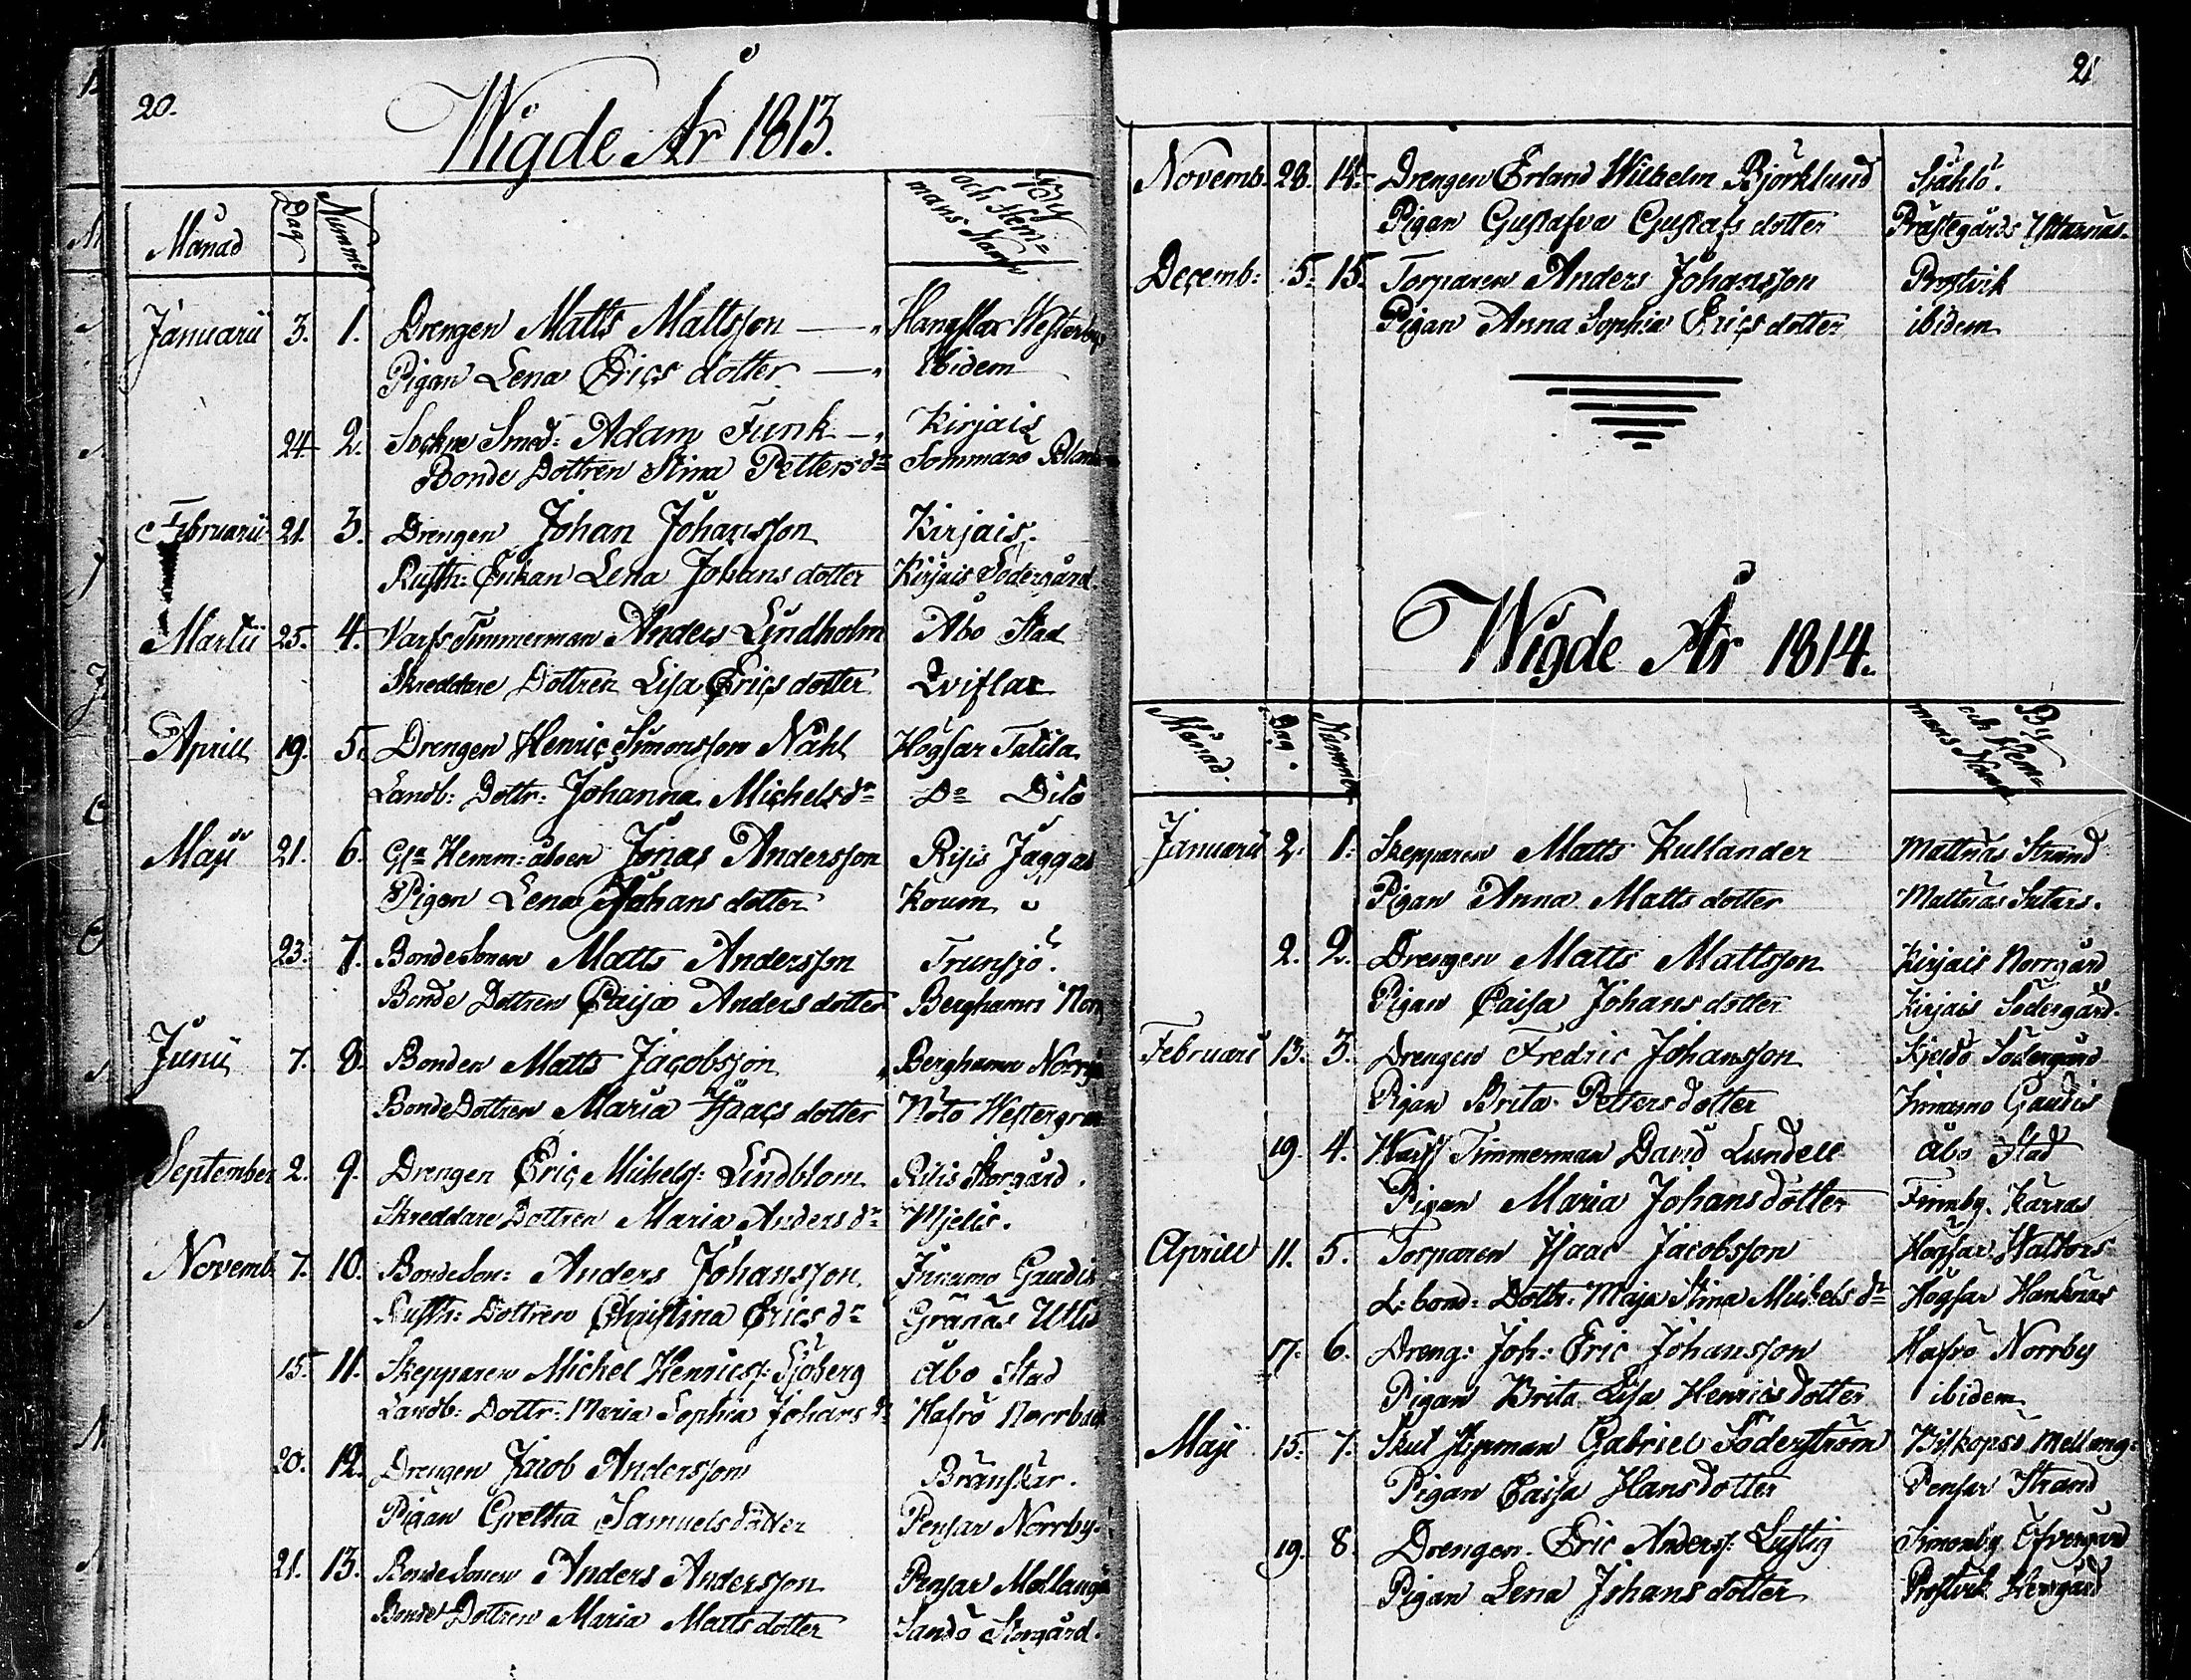 20.
Wigde År 1813.
Månad Dag Nummer By och Hem= mans Namn
Januarii 3. 1. Drengen Matts Mattsson Hangslax Westerby
Pigan Lena Erics dotter Ibidem
24 2. Sockne Smed: Adam Funk Kirjais
Bonde Dottren Stina Petters dr Sommarö
Februarii 21. 3. Drengen Johan Johansson Kirjais.
Rusth: Enkan Lena Johans dotter Kirjais Södergård.
Martii 25. 4. Varfs Timmerman Anders Lindholm Åbo Stad
Skreddare Dottren Lisa Erics dotter Qviflax
Aprill 19. 5. Drengen Henric Simonsson Nåhl Högsar
Landb: Dottr: Johanna Michels dr Do Dito
Maji 21. 6. Hemm: Jonas Andersson Risis Jaggas
Pigan Lena Johans dotter
23. 7. Bonde Sonen Matts Andersson Trunsjö.
Bonde Dottren Caisa Anders dotter Berghamn
Junii 7. 8. Bonden Matts Jacobsson Berghamn
Bonde Dottren Maria Isaacs dotter Nötö
September 2. 9. Drengen Eric Michelss: Lindblom Risis Storgård.
Skreddare Dottren Maria Anders dr Mjelis.
Novemb. 7. 10. Bonde Son: Anders Johansson Innamo Gaudis
Rusth: Dottren Christina Erics dr Granäs
15. 11. Skepparen Michel Henricss: Sjöberg Åbo Stad
Landb: Dottr: Maria Sophia Johans dr Hafrö
20. 12. Drengen Jacob Andersson Bränskär.
Pigan Gretha Samuels dotter Pensar Norrby.
21. 13. Bonde Sonen Anders Andersson Pensar
Bonde Dottren Maria Matts dotter Sandö Storgård.
21
Novemb. 28. 14. Drengen Erland Wilhelm Björklund Själö.
Pigan Gustafva Gustafs dotter Prästegårds
Decemb: 5. 15. Torparen Anders Johansson Prostvik
Pigan Anna Sophia Erics dotter ibidem
Wigde År 1814.
Månad. Dag. Nummer By och Hem= mans Namn
Januarii 2. 1. Skepparen Matts Kullander Mattnäs Strand
Pigan Anna Matts dotter Mattnäs
2. 2. Drengen Matts Mattsson Kirjais Norrgård
Pigan Caisa Johans dotter Kirjais Södergård.
Februarii 13. 3. Drengen Fredric Johansson Södergård
Pigan Brita Petters dotter Innamo Gaudis
19. 4. Warfs Timmerman David Lundell Åbo Stad
Pigan Maria Johans dotter Finnby. Karras
Aprill 11. 5. Torparen Isaac Jacobsson Högsar
L: bond: Dottr: Maja Stina Michels dr Högsar
17. 6. Dreng: Joh: Eric Johansson Hafrö Norrby
Pigan Brita Lisa Henrics dotter ibidem
Maji 15. 7. Gabriel Söderström Biskopsö Mellang:
Pigan Caisa Hans dotter Pensar Strand
19. 8. Drengen Eric Anderss: Lustig Simonby Öfvergård
Pigan Lena Johans dotter Prostvik